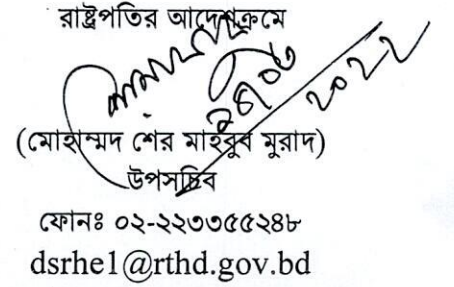 রাষ্ট্রপতির আদেশক্রমে
২০২২
(মোহাম্মদ শের মাহবুব মুরাদ)
উপসচিব
ফোনঃ ০২-২২৩৩৫৫২৪৮
dsrhe1@rthd.gov.bd